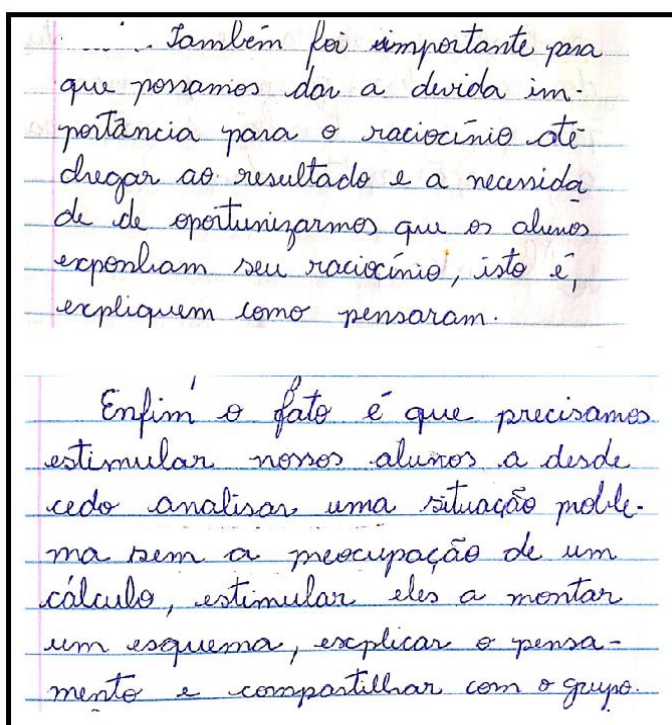 ..... . Também foi importante para
que possamos dar a devida im-
portância para o raciocínio até
chegar ao resultado e a necessida
de de oportunizarmos que os alunos
exponham seu raciocínio, isto é,
expliquem como pensaram.
Enfim o fato é que precisamos
estimular nossos alunos a desde
cedo analisar uma situação proble-
ma sem a preocupação de um
cálculo, estimular eles a montar
um esquema, explicar o pensa-
mento e compartilhar com o grupo.